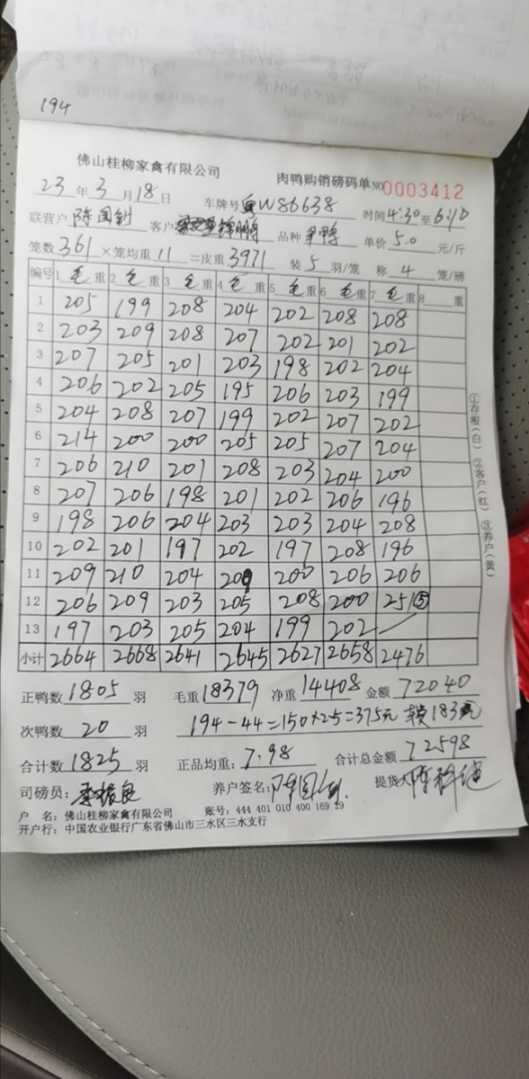 194
佛山桂柳家禽有限公司 肉鸭购销磅码单 NO 0003412
23 年 3 月 18 日 车牌号 粤W86638 时间 4:30 至 6:10
联营户 陈国钊 客户 品种 单价 5.0 元/斤
笼数 361 ×笼均重 11 =皮重 3971 装 5 羽/笼 称 4 笼/磅
编号 1 毛 重 2 毛 重 3 毛 重 4 毛 重 5 毛 重 6 毛 重 7 毛 重 8 重
1 205 199 208 204 202 208 208
2 203 209 208 207 202 201 202
3 207 205 201 203 198 202 204
4 206 202 205 195 206 203 199
5 204 208 207 199 202 207 202
6 214 200 200 205 205 207 204
7 206 210 201 208 203 204 200
8 207 206 198 201 202 206 196
9 198 206 204 203 203 204 208
10 202 201 197 202 197 208 196
11 209 210 204 209 200 206 206
12 206 209 203 205 208 200 251⑤
13 197 203 205 204 199 202
小计 2664 2668 2641 2645 2627 2658 2476
①存根(白) ②客户(红) ③养户(黄)
正鸭数 1805 羽 毛重 18379 净重 14408 金额 72040
次鸭数 20 羽 194-44=150×2.5=375元 183元
合计数 1825 羽 正品均重: 7.98 合计总金额 72598
司磅员: 养户签名: 陈国钊 提货人
户 名: 佛山桂柳家禽有限公司 账号: 444 401 010 400 169 29
开户行: 中国农业银行广东省佛山市三水区三水支行